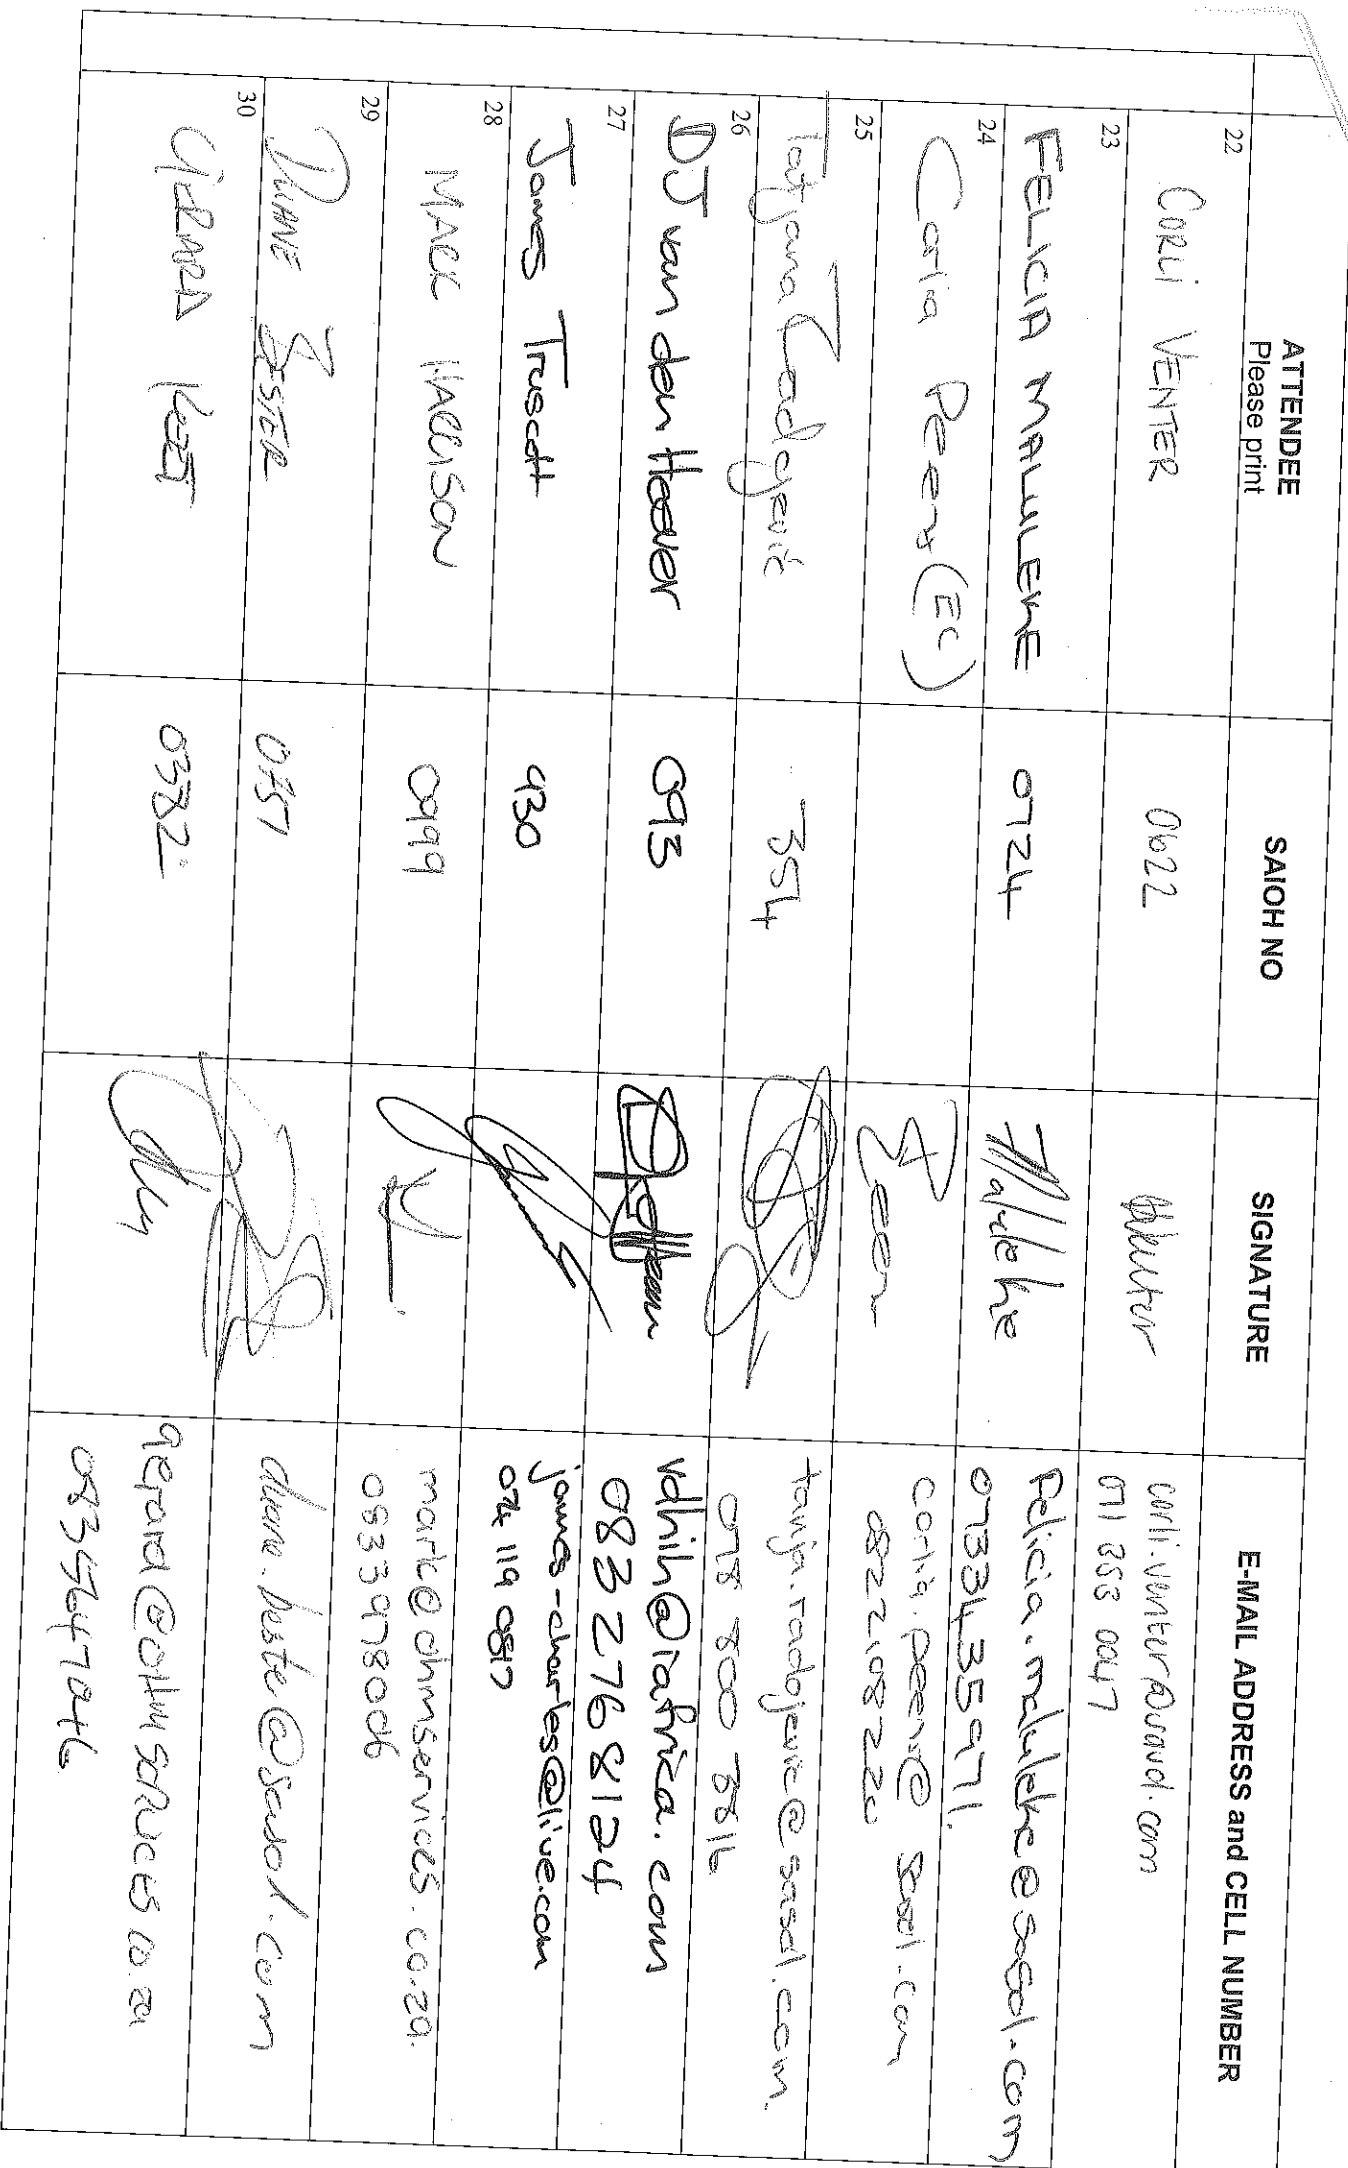 ATTENDEE
Please print
SAIOH NO
SIGNATURE
E-MAIL ADDRESS and CELL NUMBER
22
CORLI VENTER
0622
corli.venter@
.com
071 353 0047
23
FELICIA MALULEKE
0724
Felicia.maluleke@sasol.com
0733435971.
24
Carlia Peens (EC)
carlia.peens@sasol.com
25
Tatjana Radojević
354
tanja.radojevic@sasol.com.
078 800 3816
26
DJ van den Heever
093
vdhih@iafrica.com
083 276 8124
27
James Truscott
930
james-charles@live.com
074 119 0817
28
MARK HARRISON
0999
mark@ohmservices.co.za.
0833978006
29
DUANE BESTER
0751
duane.bester@sasol.com
30
GERARD
0332
gerard@
.co.za
0835647046